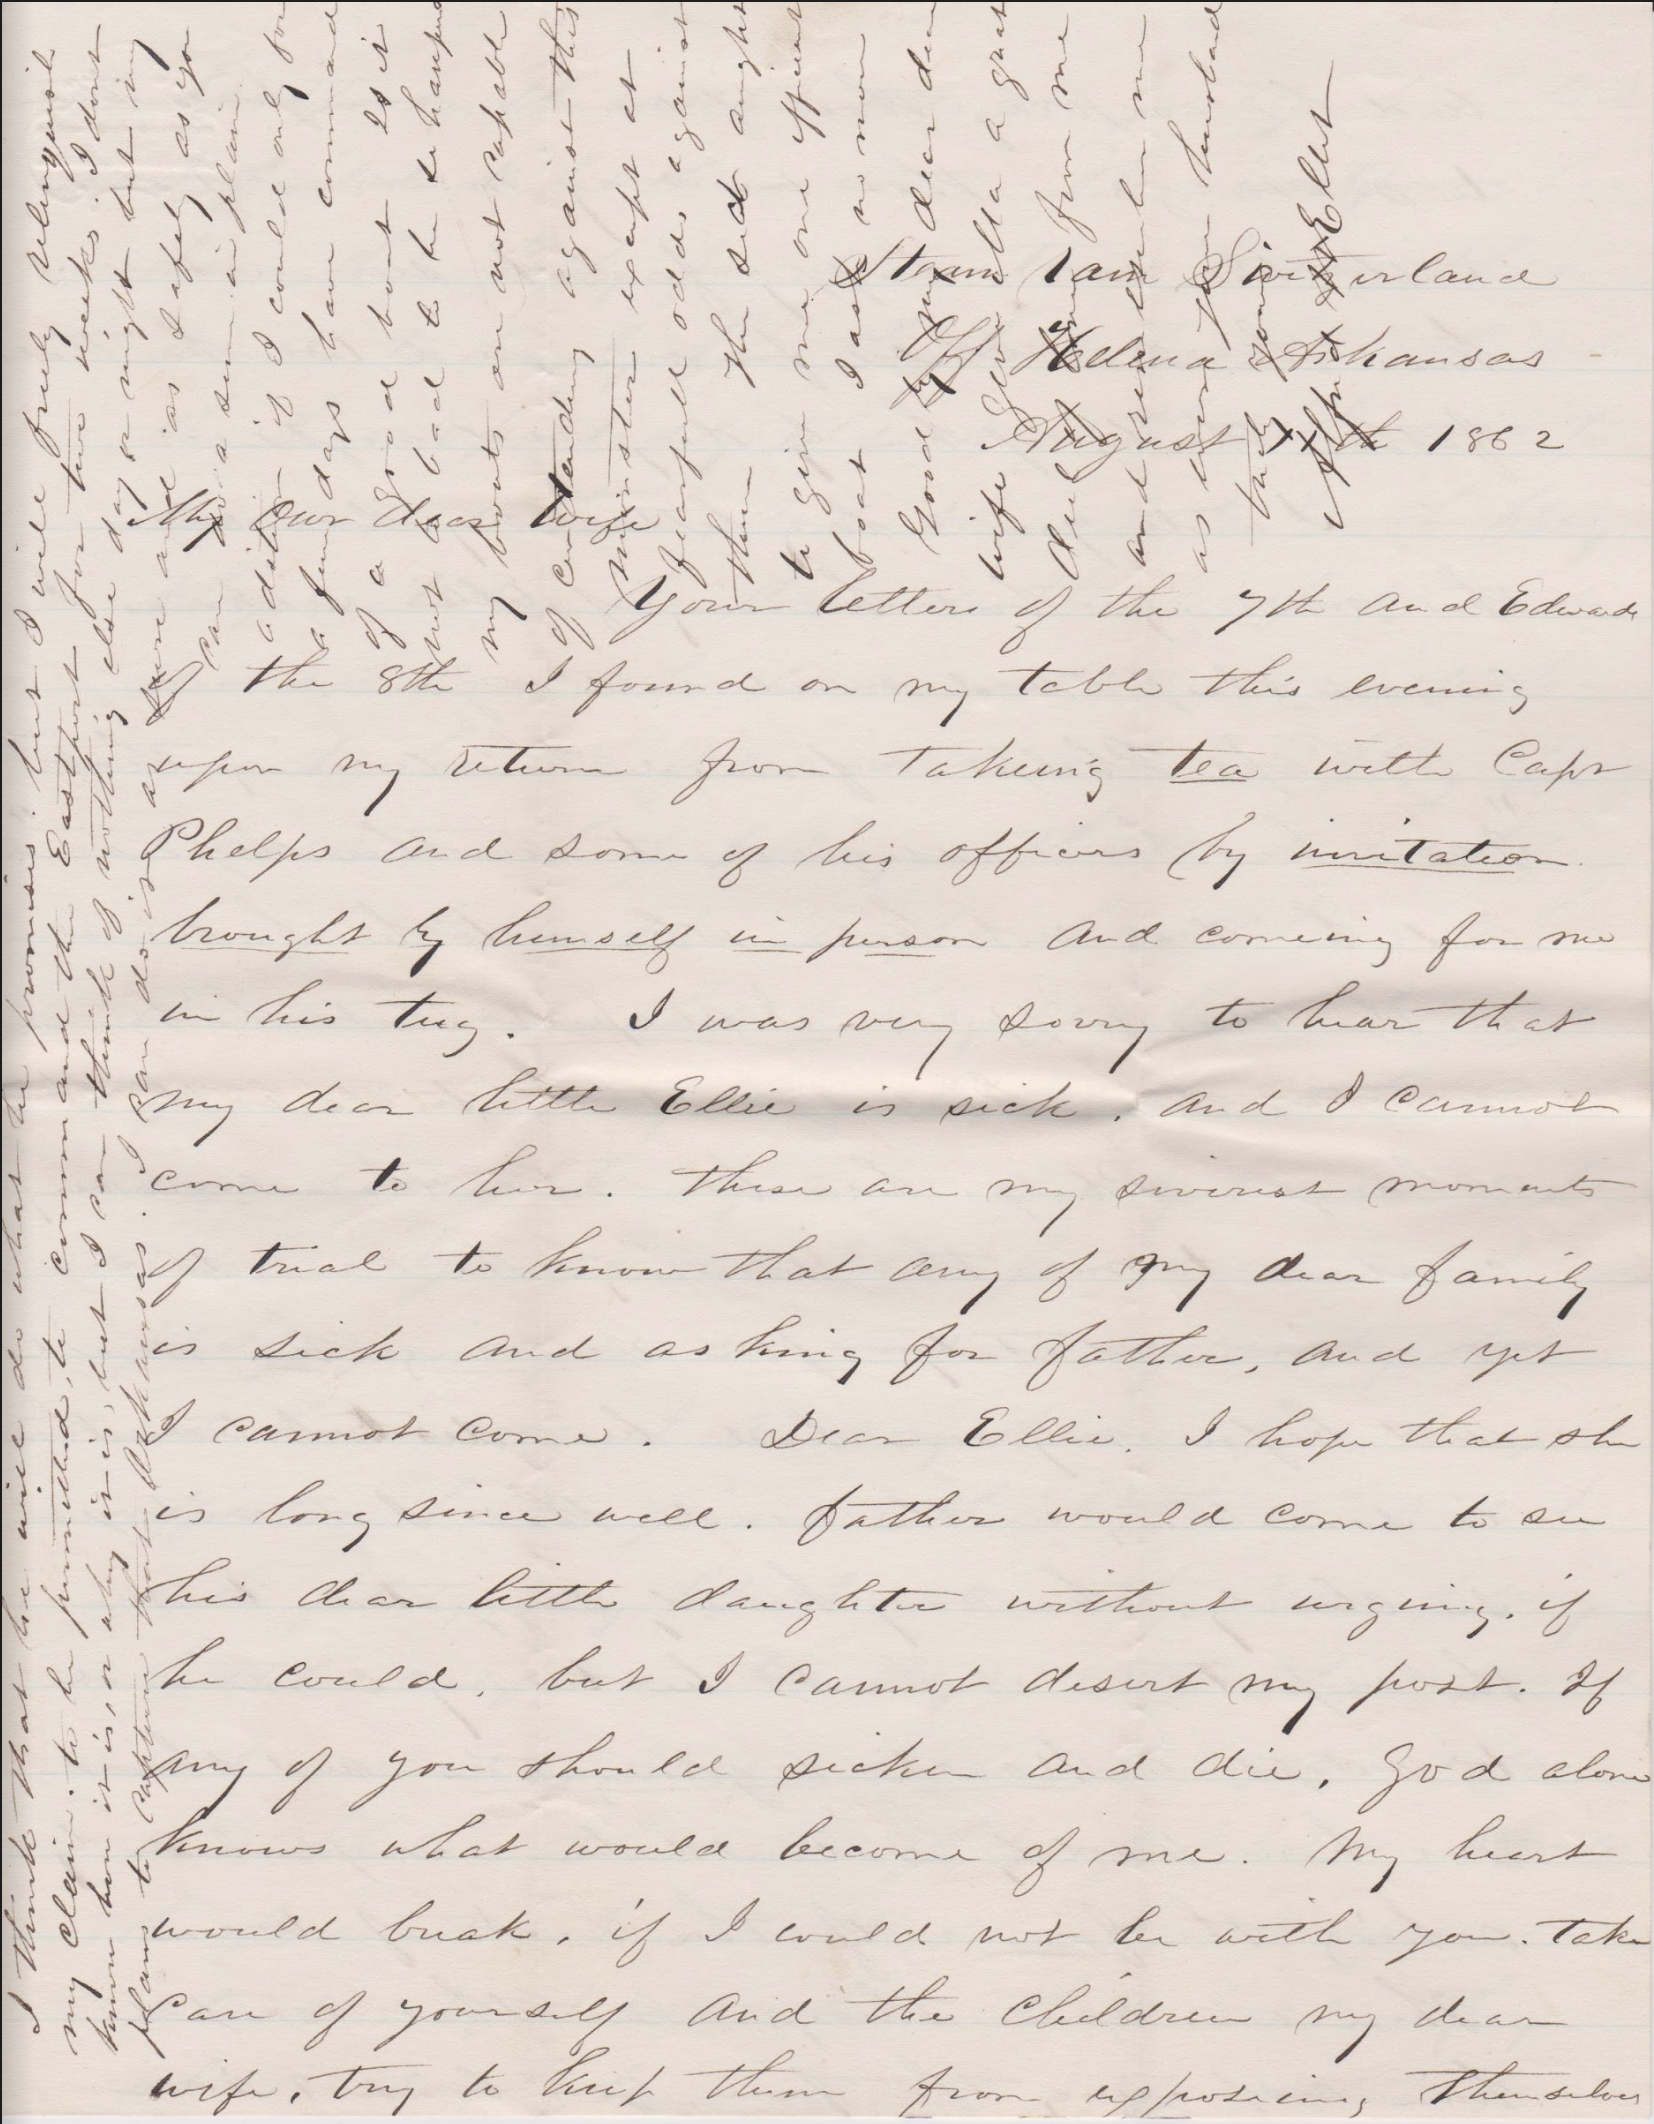 Steam Ram Switzerland
Off Helena Arkansas
August 1862
My own dear wife
Your letters of the 7th and Edwards
of the 8th I found on my table this evening
upon my return from takeing tea with Capt
Phelps and some of his officers by invitation
brought by himself in person and comeing for me
in his tug. I was very sorry to hear that
my dear little Ellie is sick, and I cannot
come to her. These are my siverest moments
of trial to know that any of my dear family
is sick and asking for father, and yet
I cannot come. Dear Ellie, I hope that she
is long since well. father would come to see
his dear little daughter without urging, if
he could, but I cannot desert my post. If
any of you should sicken and die, God alone
knows what would become of me. My heart
would break, if I could not be with you. Take
care of yourself and the children my dear
wife, try to keep them from exposeing themselves
I think that he will do what he promises, but I will freely relinquish
my claim, to be permitted, to command the Eastport for two weeks. I dont
know how it is, or why it is, but I can think of nothing else day or night but my
plans to capture that Arkansas. I can do it as sure and as safely as you
can a sum in plain
adition if I could only for
a few days have command
of a good boat. Is it
not too bad to be so hampered
my boats are not capable
of contending against this
Monster except at
fearfull odds against
them. The sect aught
to give me one efficient
boat I ask no more
Good by my dear dear
wife Give Ella a great
deal from me
and remember me
as ever your husband
truly yours
Alfred W Ellet